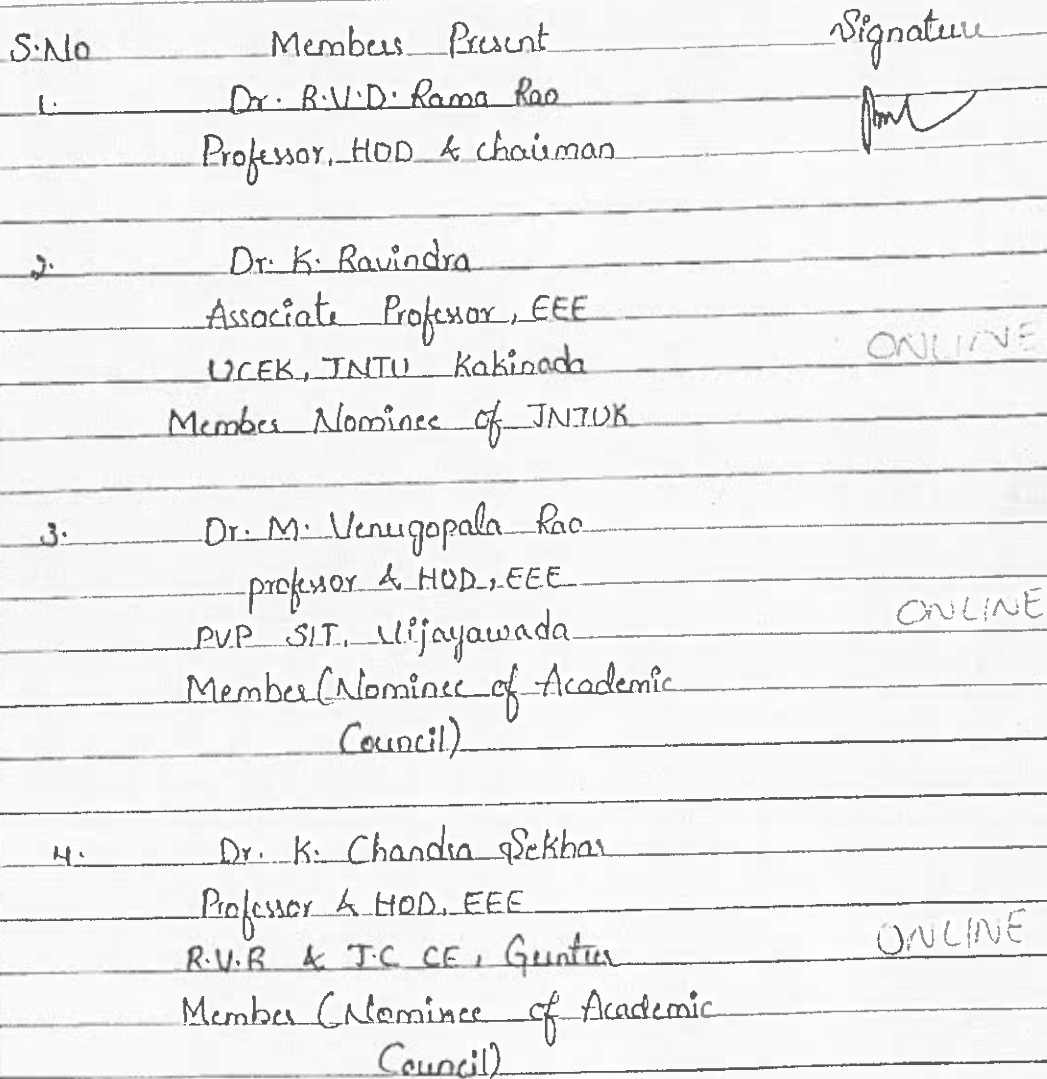 S.No Members Present Signature
1. Dr. R.V.D. Rama Rao
Professor, HOD & chairman
2. Dr. K. Ravindra
Associate Professor, EEE
UCEK, JNTU Kakinada ONLINE
Member Nominee of JNTUK
3. Dr. M. Venugopala Rao
professor & HOD, EEE
PVP SIT, Vijayawada ONLINE
Member (Nominee of Academic
Council)
4. Dr. K. Chandra Sekhar
Professor & HOD, EEE
R.V.R & J.C CE, Guntur ONLINE
Member (Nominee of Academic
Council)